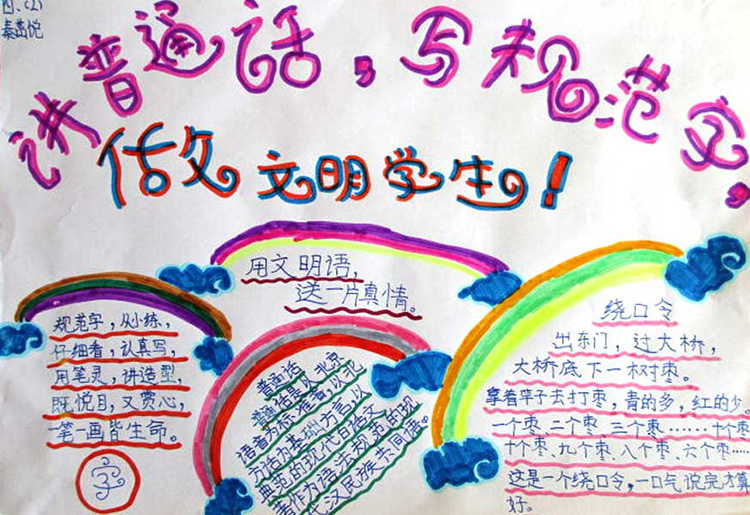 四、(2)
讲普通话，写规范字，
做文明学生！
用文明语，
送一片真情。
规范字，从小练，
仔细看，认真写，
用笔灵，讲造型，
既悦目，又赏心，
一笔一画皆生命。
字
普通话
普通话是以北京
语音为标准音，以北
方话为基础方言，以
典范的现代白话文
著作为语法规范的现
代汉民族共同语。
绕口令
出东门，过大桥，
大桥底下一树枣。
拿着竿子去打枣，青的多，红的少。
一个枣 二个枣 三个枣……十个枣
十个枣、九个枣、八个枣、六个枣……
这是一个绕口令，一口气说完才算
好。